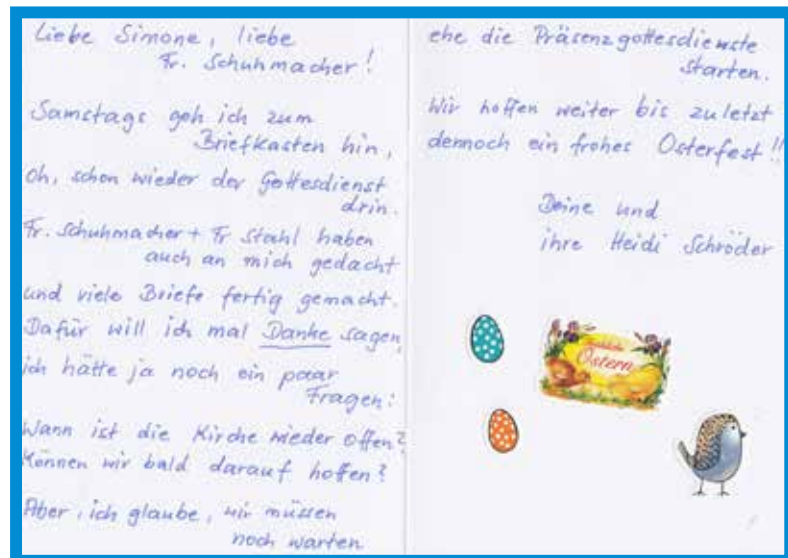 Liebe Simone, liebe
Fr. Schuhmacher!
Samstags geh ich zum
Briefkasten hin,
Oh, schon wieder der Gottesdienst
drin.
Fr. Schuhmacher + Fr Stahl haben
auch an mich gedacht
und viele Briefe fertig gemacht.
Dafür will ich mal Danke sagen,
ich hätte ja noch ein paar
Fragen:
Wann ist die Kirche wieder offen?
Können wir bald darauf hoffen?
Aber, ich glaube, wir müssen
noch warten
ehe die Präsenzgottesdienste
starten.
Wir hoffen weiter bis zuletzt
dennoch ein frohes Osterfest!!
Deine und
ihre Heidi Schröder
Fröhliche
Ostern